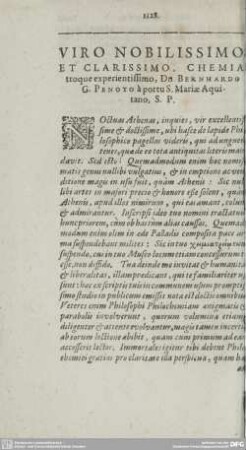 VIRO NOBILISSIMO
ET CLARISSIMO, CHEMIA
troque experientissimo, Dn BERNHARDO
G. PENOTO à portu S. Mariæ Aqui-
tano, S. P.
NOctuas Athenas, inquies, vir excellenti
sime & doctissime, ubi hasce de lapide Phi
losophico pagellas videris, qui ad unguem
tenes, quæ de ea tota antiquitas literis man
davit. Sed esto: Quemadmodum enim hoc nomis
matis genus nulli vulgatum, & in emptione ac ven
ditione magis in usu fuit, quàm Athenis: Sic nul
libi artes in majori precio & honore esse solent, quàm
Athenis, apud illos nimirum, qui eas amant, colunt
& admirantur. Inscripsi ideo tuo nomini tractatum
hunc priorem, cùm ob has tum alias caussas. Quemad
modum enim olim in æde Palladis composita pace ar
ma suspendebant milites: Sic in tuo
suspendo, cùm in tuo Musæo locum etiam concessurum te
esse, non diffido. Tua deinde me invitat & humanitas
& liberalitas, illam prædicant, qui te familiariter n
sunt: hac ex scriptis tuis in communem usum promptis
simo studio in publicum emissis nota est doctis omnibus
Veteres enim Philosophi Philochemiam ænigmatis &
parabolis involverunt, quorum volumina etiamsi
diligenter & attente evolvantur, magis tamen incertus
ab eorum lectione abibis, quàm cùm primum ad eam
accesseris lector. Immortales igitur tibi debent Philo
chemici gratias pro claritate illa perspicua, quam ha